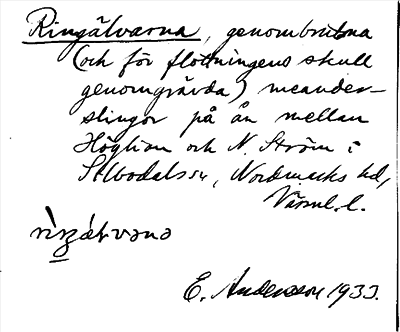 Ringälvarna, genombrutna
(och för flottningens skull
genomgrävda) meander-
slingor på ån mellan
Höglian och N. Ström i
Silbodals sn, Nordmarks hd,
Värml. l.
E. Andersson 1933.